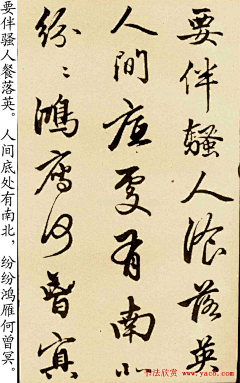 要伴骚人餐落英
人间底处有南北
纷纷鸿雁何曾冥
要伴骚人餐落英。人间底处有南北，纷纷鸿雁何曾冥。
书法欣赏 www.yac8.com